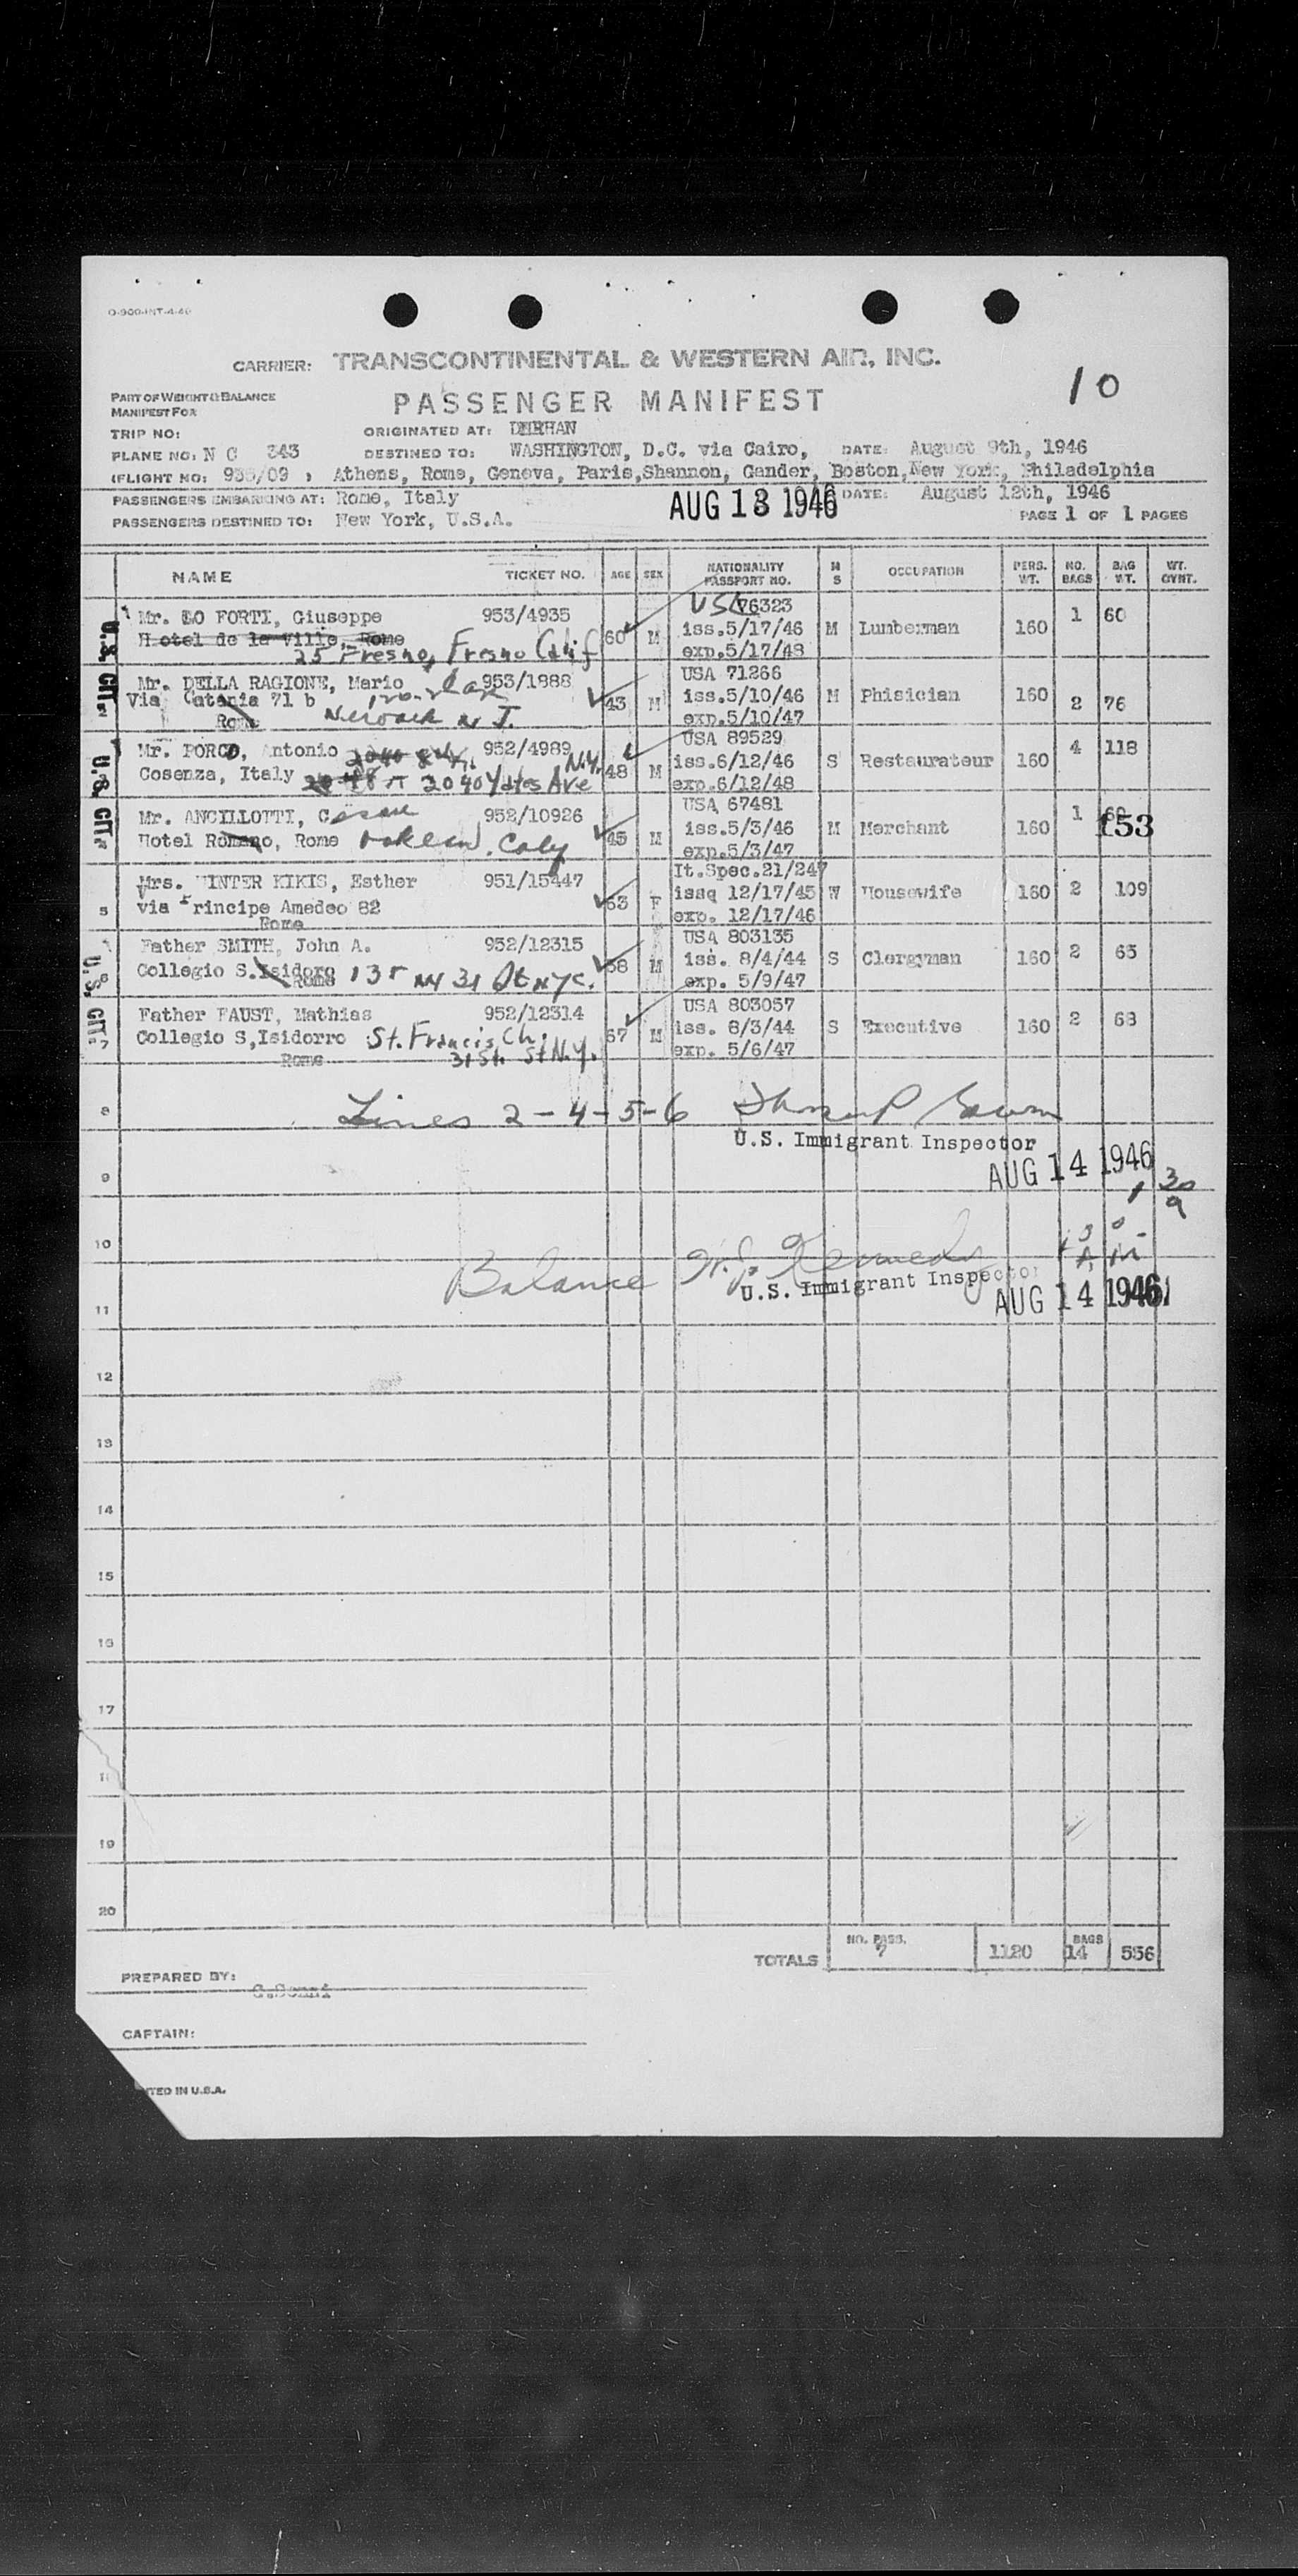 O-900-INT-4-46
CARRIER: TRANSCONTINENTAL & WESTERN AIR, INC.
10
PART OF WEIGHT & BALANCE
MANIFEST FOR
PASSENGER MANIFEST
TRIP NO: ORIGINATED AT:
PLANE NO: N C 343 DESTINED TO: WASHINGTON, D.C. via Cairo, DATE: August 9th, 1946
(FLIGHT NO: Athens, Rome, Geneva, Paris,Shannon, Gander, Boston,New York, Philadelphia
PASSENGERS EMBARKING AT: Rome, Italy AUG 13 1946 DATE: August 12th, 1946
PASSENGERS DESTINED TO: New York, U.S.A. PAGE 1 OF 1 PAGES
NAME TICKET NO. AGE SEX NATIONALITY PASSPORT NO. M S OCCUPATION PERS. WT. NO. BAGS BAG WT. WT. OVNT.
U.S. CIT.
Mr. LO FORTI, Giuseppe 953/4935 60 M USA 76323 M Lumberman 160 1 60
Hotel de la Ville, Rome iss.5/17/46
25 Fresno, Fresno Calif exp.5/17/48
U.S. CIT.
Mr. DELLA RAGIONE, Mario 953/1888 43 M USA 71266 M Phisician 160 2 76
Via Catania 71 b iss.5/10/46
Rome Newark N J. exp.5/10/47
U.S. CIT.
Mr. PORCO, Antonio 952/4989 48 M USA 89529 S Restaurateur 160 4 118
Cosenza, Italy 2040 Yates Ave N.Y. iss.6/12/46
exp.6/12/48
Mr. ANCILLOTTI, Cesare 952/10926 45 M USA 67481 M Merchant 160 1 60
Hotel Romano, Rome iss.5/3/46 153
exp.5/3/47
Mrs. WINTER KIKIS, Esther 951/15447 63 F It.Spec.21/247 W Housewife 160 2 109
5 via Principe Amedeo 82 issq 12/17/45
Rome exp. 12/17/46
U.S. CIT.
Father SMITH, John A. 952/12315 58 M USA 803135 S Clergyman 160 2 65
Collegio S.Isidoro 135 W 31 St NYC. iss. 8/4/44
Rome exp. 5/9/47
Father FAUST, Mathias 952/12314 67 M USA 803057 S Executive 160 2 68
7 Collegio S,Isidorro St. Francis Ch. iss. 8/3/44
Rome 31 St. St N.Y. exp. 5/6/47
8 Lines 2-4-5-6
U.S. Immigrant Inspector
9 AUG 14 1946
10
Balance
U.S. Immigrant Inspector
11 AUG 14 1946
12
13
14
15
16
17
19
20
TOTALS NO. PASS. 7 1120 BAGS 14 556
PREPARED BY:
CAPTAIN:
TED IN U.S.A.